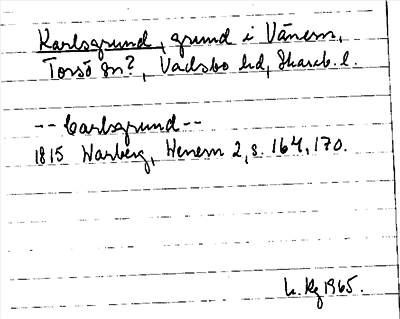 Karlsgrund, grund i Vänern,
Torsö sn?, Vadsbo hd, Skarab. l.
-- Carlsgrund --
1815 Warberg, Wenern 2, s. 164, 170.
1965.